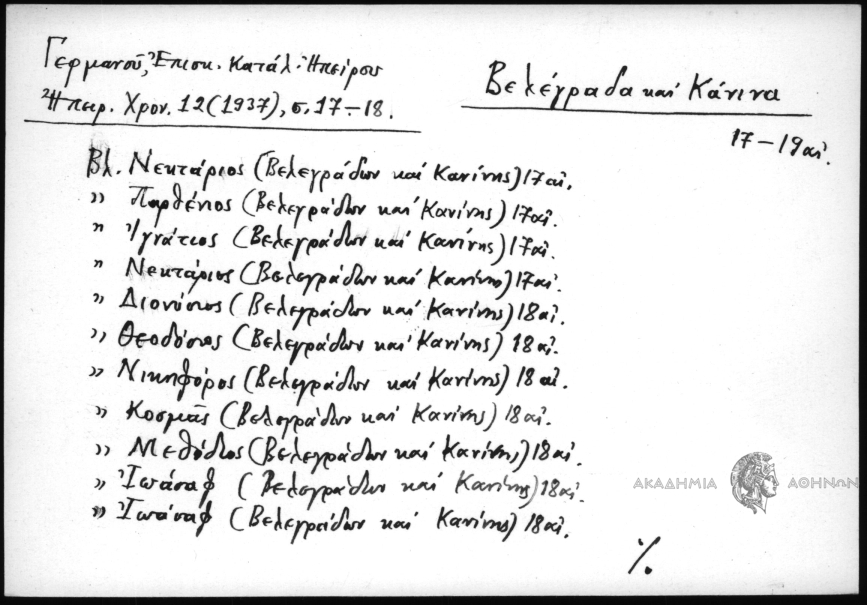 Γερμανοῦ, Ἐπισκ. Κατάλ. Ἠπείρου
Ἠπειρ. Χρον. 12 (1937), σ. 17-18.
Βελέγραδα καὶ Κάνινα
17-19 αἰ.
Βλ. Νεκτάριος (Βελεγράδων καὶ Κανίνης) 17 αἰ.
" Παρθένιος (Βελεγράδων καὶ Κανίνης) 17 αἰ.
" Ἰγνάτιος (Βελεγράδων καὶ Κανίνης) 17 αἰ.
" Νεκτάριος (Βελεγράδων καὶ Κανίνης) 17 αἰ.
" Διονύσιος (Βελεγράδων καὶ Κανίνης) 18 αἰ.
" Θεοδόσιος (Βελεγράδων καὶ Κανίνης) 18 αἰ.
" Νικηφόρος (Βελεγράδων καὶ Κανίνης) 18 αἰ.
" Κοσμᾶς (Βελεγράδων καὶ Κανίνης) 18 αἰ.
" Μεθόδιος (Βελεγράδων καὶ Κανίνης) 18 αἰ.
" Ἰωάσαφ (Βελεγράδων καὶ Κανίνης) 18 αἰ.
" Ἰωάσαφ (Βελεγράδων καὶ Κανίνης) 18 αἰ.
ΑΚΑΔΗΜΙΑ ΑΘΗΝΩΝ
./.